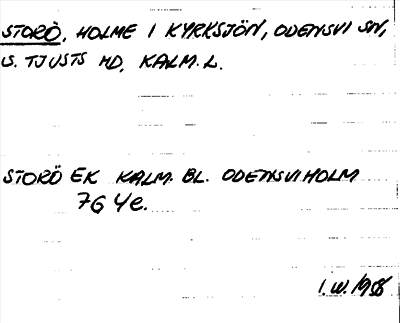 STORÖ, HOLME I KYRKSJÖN, ODENSVI SN,
S. TJUSTS HD, KALM. L.
STORÖ EK KALM. BL. ODENSVIHOLM
7G 4e.
I.W. 1956